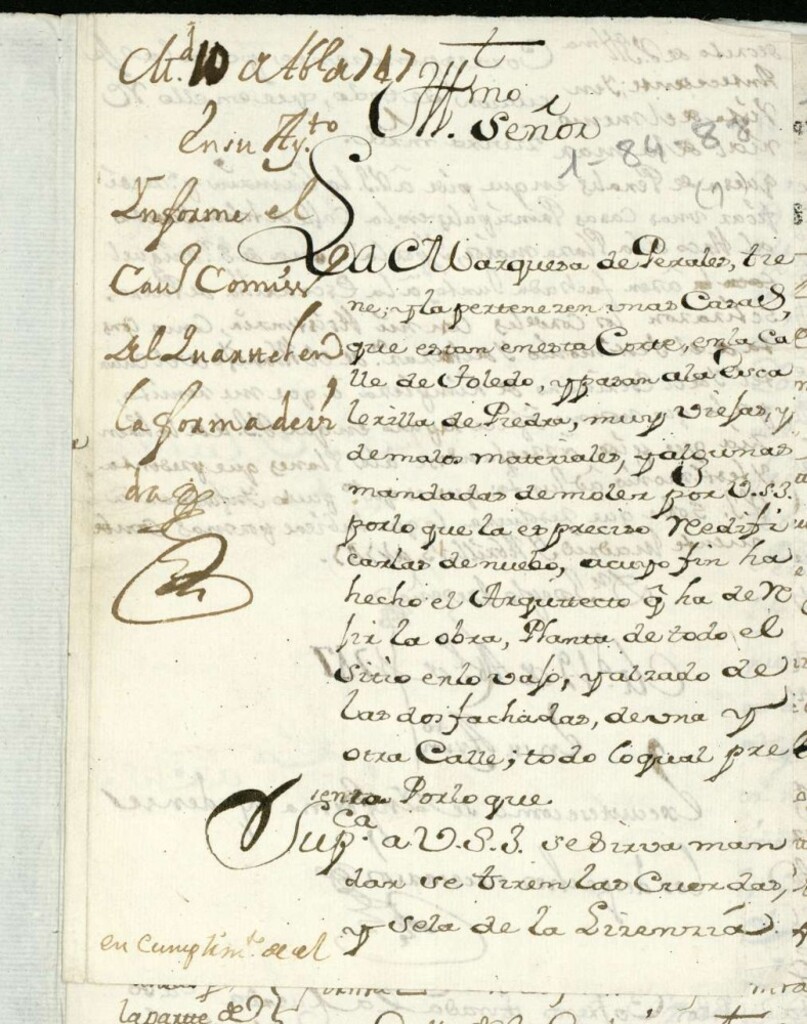 Md. 10 de Abl de 747
En su Ayto
Informe el
Cavo Comisso
Al Quartel en
la forma devi
da
t
Illmo Señor
1-84-88
(1)
La Marquesa de Perales, tie
ne, y la pertenezen unas Casas,
que estan en esta Corte, en la Ca
lle de Toledo, y pasan ala Esca
lerilla de Piedra, muy viejas, y
de malos materiales, y algunas
mandadas demoler por V.S.I.
por lo que la es preciso Redifi
carlas de nuebo, a cuyo fin ha
hecho el Arquitecto q̃ ha de Re
jir la obra, Planta de todo el
sitio en lo vajo, y alzado de
las dos fachadas, de una y
otra Calle; todo lo qual pre
senta Por lo que
Supca. a V.S.I. se sirva man
dar se tiren las Cuerdas,
y se la de la Lizenzia
en cumplimto. de el
la partte de